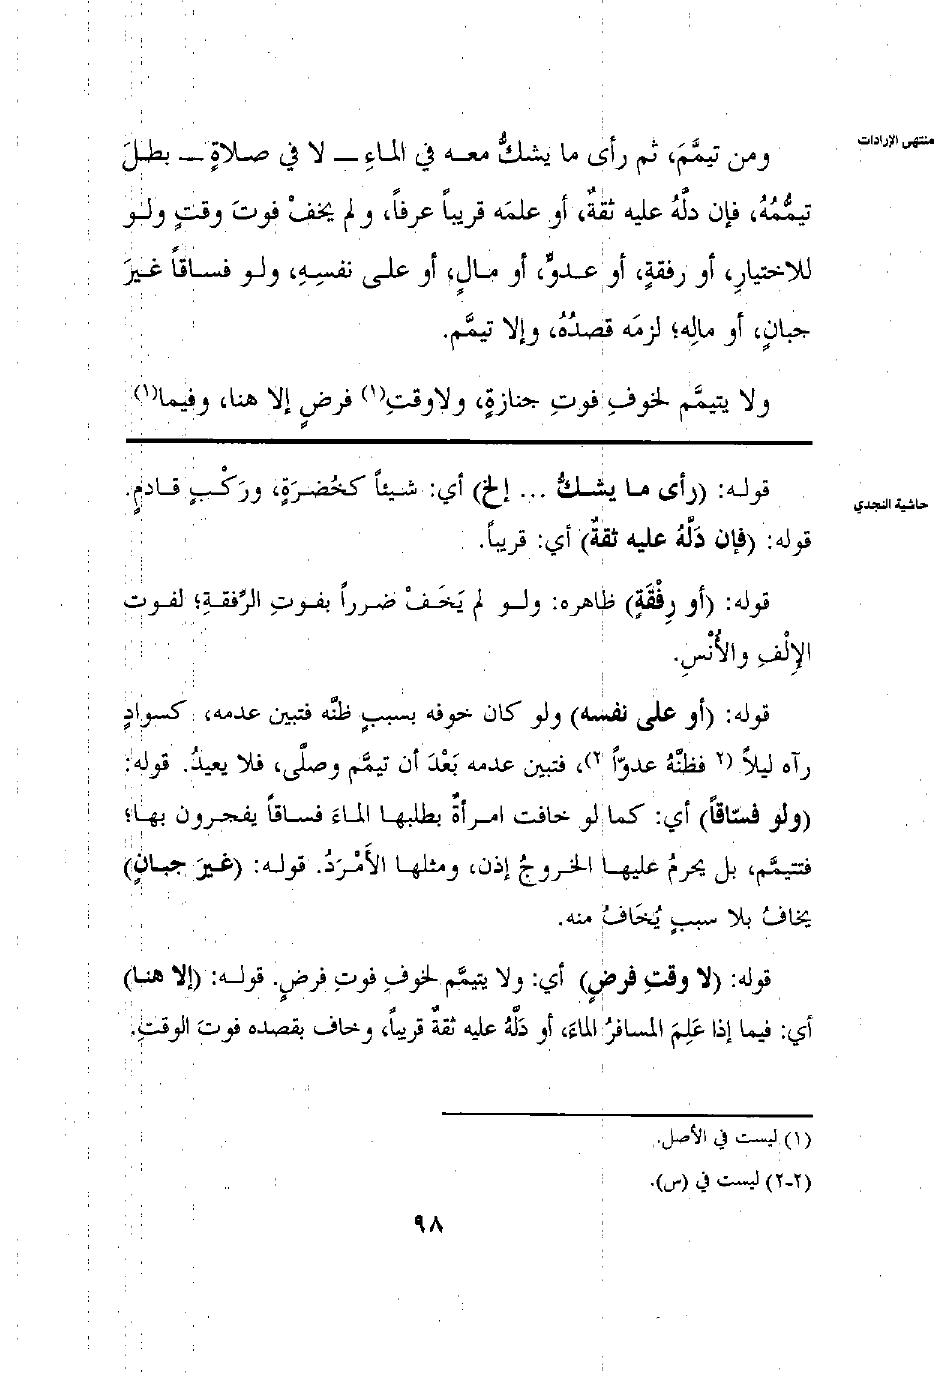 منتهى الإرادات
ومن تيمَّمَ، ثم رأى ما يشكُّ معـه في المـاءِ ــ لا في صـلاةٍ ــ بطـلَ
تيمُّمُهُ، فإن دلَّهُ عليه ثقةٌ، أو علمَه قريباً عرفاً، ولم يخفْ فوتَ وقتٍ ولـو
للاختيارِ، أو رفقةٍ، أو عـدوٍّ، أو مـالٍ، أو علـى نفسِـهِ، ولـو فسـاقاً غيـرَ
جبانٍ، أو مالِه؛ لزمَه قصدُهُ، وإلا تيمَّم.
ولا يتيمَّم لخوفِ فوتِ جنازةٍ، ولاوقتِ(١) فرضٍ إلا هنا، وفيما(١)
حاشية النجدي
قولـه: (رأى مـا يشـكُّ ... إلخ) أي: شيئاً كخُضـرَةٍ، ورَكْـبٍ قـادمٍ.
قوله: (فإن دَلَّهُ عليه ثقةٌ) أي: قريباً.
قوله: (أو رِفْقَةٍ) ظاهره: ولـو لم يَخَـفْ ضـرراً بفـوتِ الرِّفقـةِ؛ لفـوتِ
الإِلْفِ والأُنْسِ.
قوله: (أو على نفسه) ولو كان خوفه بسببٍ ظنَّه فتبين عدمه، كسوادٍ
رآه ليلاً (٢ فظنَّهُ عدوّاً ٢)، فتبين عدمه بَعْدَ أن تيمَّم وصلَّى، فلا يعيدُ. قوله:
(ولو فسّاقاً) أي: كمـا لو خافت امـرأةٌ بطلبهـا المـاءَ فسـاقاً يفجـرون بهـا؛
فتتيمَّم، بل يحرمُ عليهـا الخـروجُ إذن، ومثلهـا الأَمْرَدُ. قولـه: (غـيرَ جبـانٍ)
يخافُ بلا سببٍ يُخَافُ منه.
قوله: (لا وقتِ فرضٍ) أي: ولا يتيمَّم لخوفِ فوتِ فرضٍ. قولـه: (إلا هنـا)
أي: فيما إذا عَلِمَ المسافرُ الماءَ، أو دَلَّهُ عليه ثقةٌ قريباً، وخاف بقصده فوتَ الوقتِ.
(١) ليست في الأصل.
(٢-٢) ليست في (س).
٩٨